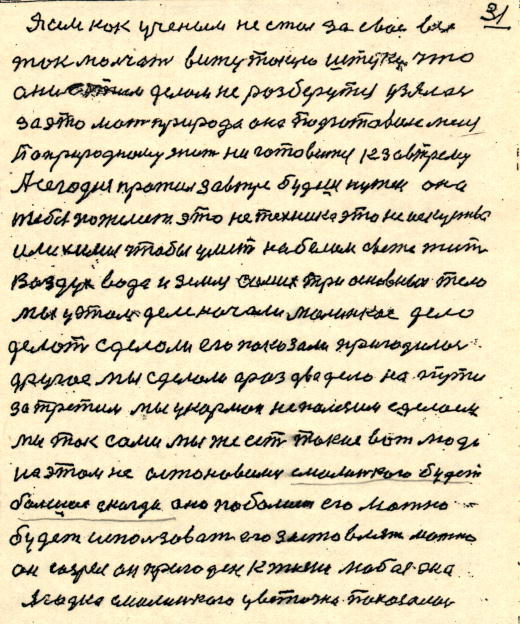 31
Я сам как ученым не стал за свое вся
так молчат вижу такую штуку что
они этим делом не разберутся узялся
за это мать природа она подготовила меня
По природному жит ни готовится к завтрему
А сегодня прожил завтре будущи нужен она
тебя пожелает это не техника это не искуства
или химия чтобы умет на белом свете жит
Воздух вода и земля самих три основных тело
мы у этом деле начали малинкое дело
делат сделали его показали пригодилос
другое мы сделали араз два дело на пути
за третим мы у карман не полезим сделаем
мы так сами мы же ест такие вот люди
на этом не астановимся смалинкого будет
большое когда оно побольше его можно
будет использоват его заставлят можно
он созрел он пригоден к жизни любая она
Ягодка смалинкого цветочка показалас